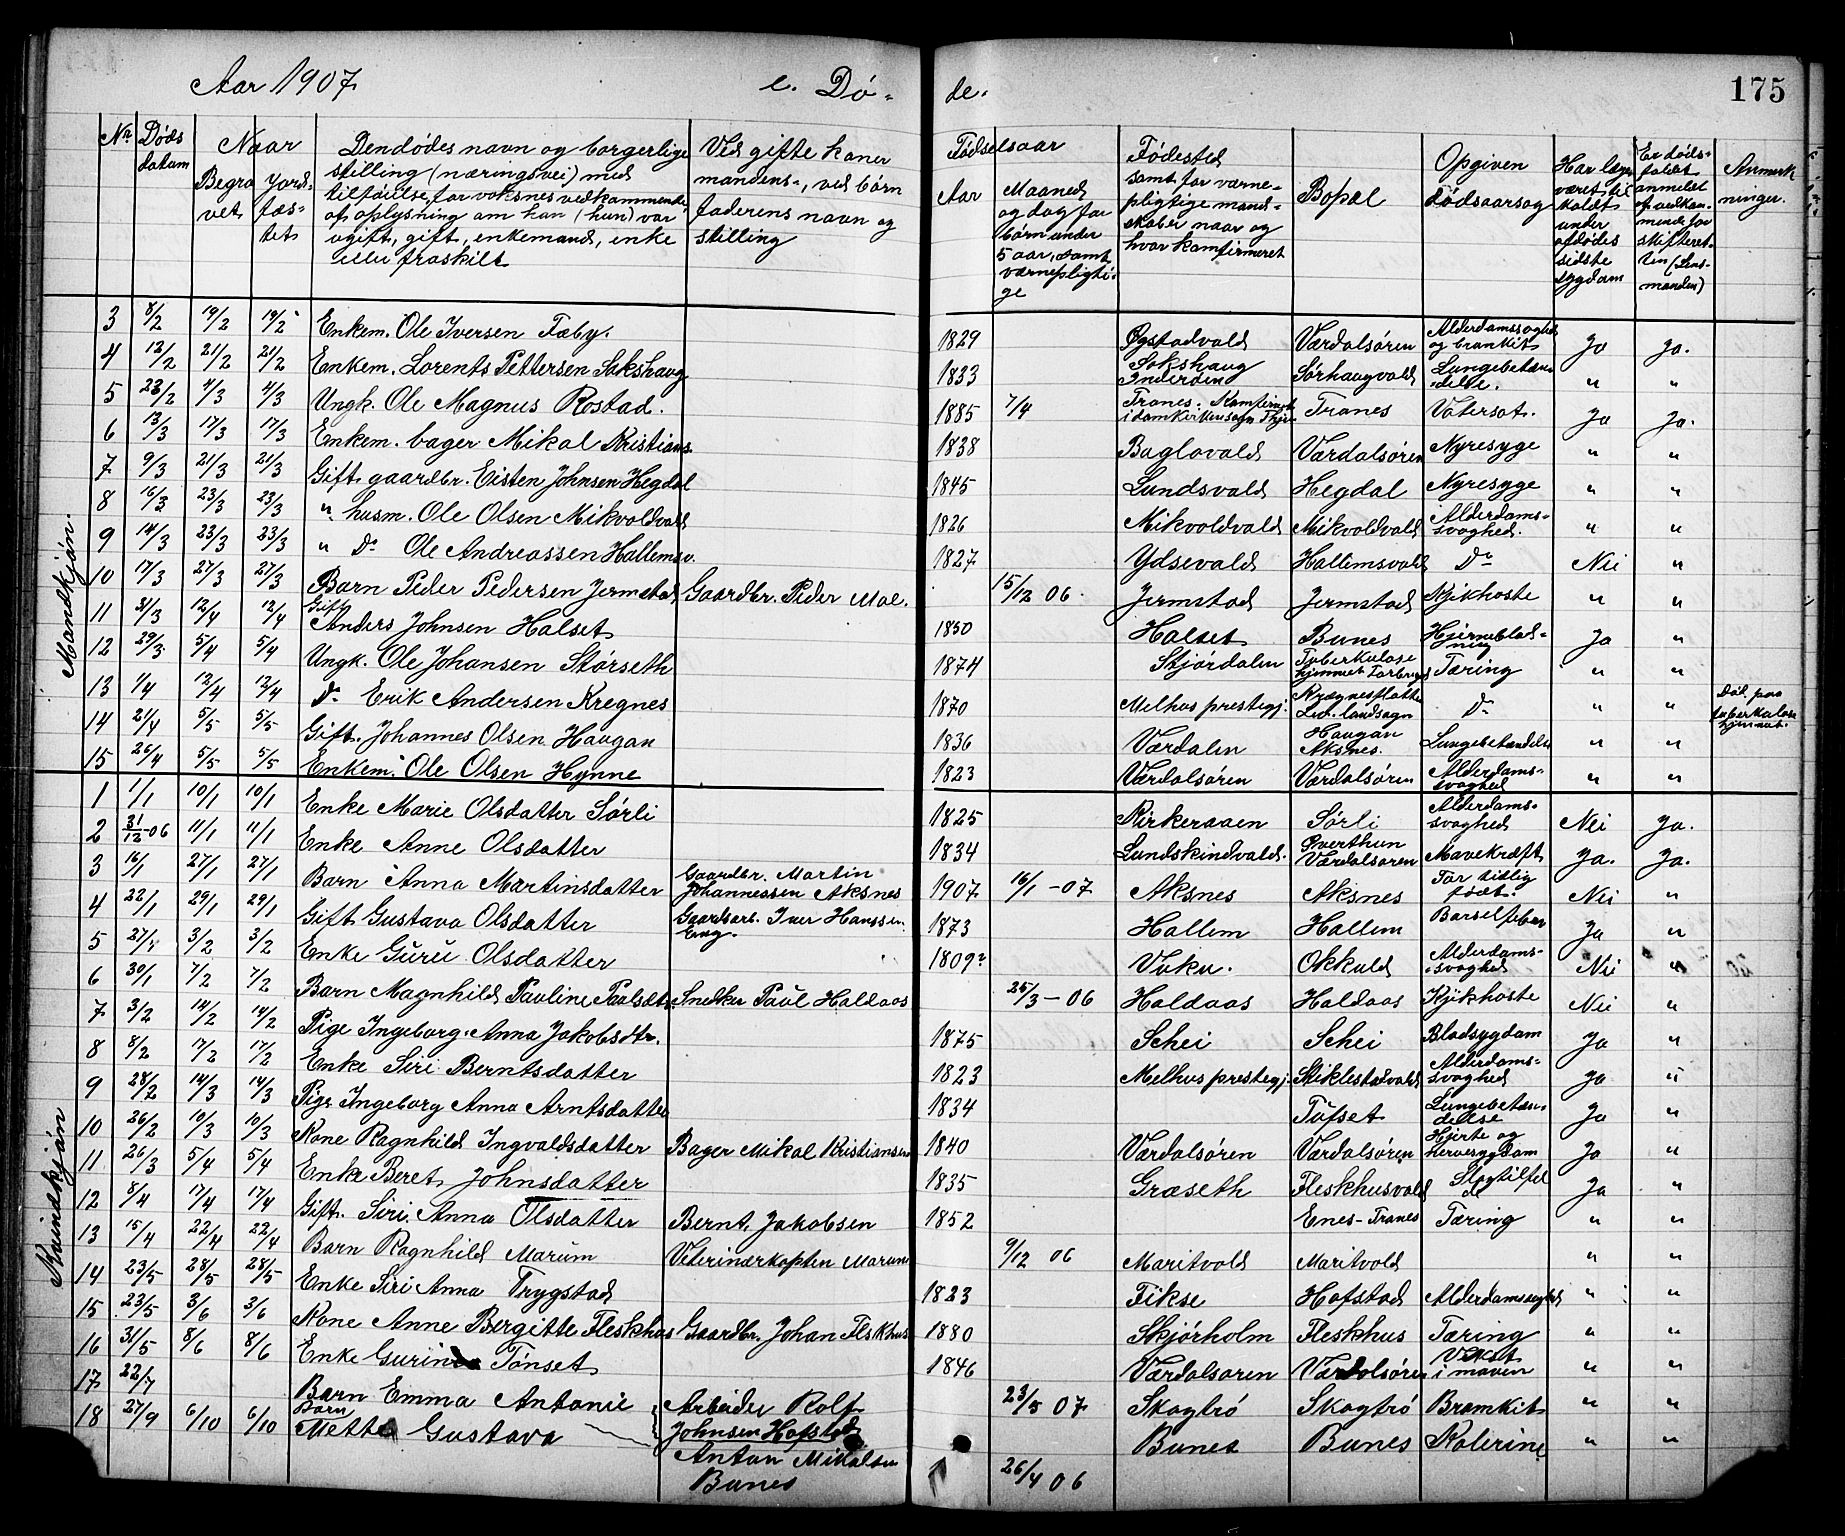 Aar 1907 e. Dø- de. 175
No Døds datum Naar Begra vet Jords- fæs- tet
Den dødes navn og borgerlige stilling (næringsvei) med tilføielse, for voksnes vedkommende, af oplysning om han (hun) var ugift, gift, enkemand, enke eller fraskilt
Ved gifte koner mandens-, ved børn faderens navn og stilling
Fødselsaar Aar Maaned og dag for børn under 5 aar, samt værnepligti- ge
Fødested samt for værne- pligtige mand- skaber naar og hvor konfirmeret
Bopæl
Opgiven Dødsaarsag
Har læge været til- kaldt under afdødes sidste sygdom
Er døds- faldet anmeldt af vedkom- mende for skifteret- ten (Lens- manden)
Anmærk ninger.
Mandkjøn.
3 8/2 19/2 19/2 Enkem. Ole Iversen Fæby. 1829 Øgstadvald Værdalsøren Alderdomssvaghed og bronkit Ja Ja.
4 12/2 21/2 21/2 Enkem. Lorents Pettersen Sakshaug 1833 Sakshaug Inderøen Sørhaugvald Lungebetæn- delse. " "
5 23/2 4/3 4/3 Ungk. Ole Magnus Rostad. 1885 7/4 Tranes. Tranes Vatersot. Ja Ja.
6 13/3 17/3 17/3 Enkem. bager Mikal Kristians. 1838 Baglovald Værdalsøren Nyresyge " "
7 9/3 21/3 21/3 Gift gaardbr. Eisten Johnsen Hegdal 1845 Lundsvald Hegdal Nyresyge " "
8 16/3 23/3 23/3 " husm. Ole Olsen Mikvoldvald 1826 Mikvoldvald Mikvoldvald Alderdoms- svaghed. " "
9 14/3 23/3 23/3 " Do Ole Andreassen Hallemsv. 1827 Ydsevald Hallemsvald Do Nei "
10 17/3 27/3 27/3 Barn Peder Pedersen Jermstad Gaardbr. Peder Moe. 15/12 06. Jermstad Jermstad Kjikhoste " "
11 31/3 12/4 12/4 Gift Anders Johnsen Halset 1850 Halset Bunes Hjerneblød- ning Ja "
12 29/3 5/4 5/4 Ungk. Ole Johansen Størseth 1874 Stjørdalen Tuberkulose hjemmet Forbregd Tæring " "
13 1/4 12/4 12/4 Do Erik Andersen Kregnes 1870 Melhus prestegj. Krægnesflotte Led. landsogn Do " " Død paa tuberkulose hjemmet.
14 21/4 5/5 5/5 Gift. Johannes Olsen Haugan 1836 Værdalen Haugan Aksnes. Lungebetændelse " "
15 26/4 5/5 5/5 Enkem. Ole Olsen Hynne 1823 Værdalsøren Værdalsøren Alderdoms- svaghed " "
Kvindkjøn
1 1/1 10/1 10/1 Enke Marie Olsdatter Sørli 1825 Kirkeraaen Sørli Alderdoms- svaghed Nei Ja.
2 31/12-06 11/1 11/1 Enke Anne Olsdatter 1834 Lundskindvald. Øverthun Værdalsøren Mavekræft Ja. Ja.
3 16/1 27/1 27/1 Barn Anna Martinsdatter Gaardbr. Martin Johannessen Aksnes 1907 16/1-07 Aksnes Aksnes For tidlig født. Nei "
4 22/1 29/1 29/1 Gift Gustava Olsdatter Gaardsarb. Iver Hanssen Eng. 1873 Hallem Hallem Barselfeber Ja "
5 27/1 3/2 3/2 Enke Guru Olsdatter 1809? Vuku. Okkuld Alderdoms- svaghed Nei "
6 30/1 7/2 7/2 Barn Magnhild Pauline Paulsdt. Snedker Paul Haldaas 25/3-06 Haldaas Haldaas Kjikhoste Nei "
7 3/2 14/2 14/2 Pige Ingeborg Anna Jakobsdtr. 1875 Schei Schei Blodsygdom Ja "
8 8/2 17/2 17/2 Enke Siri Berntsdatter 1823 Melhus prestegj. Stiklestadvald Alderdoms- svaghed Ja "
9 28/2 14/3 14/3 Pige Ingeborg Anna Arntsdatter 1834 Tufset Lungebetæn- delse Ja "
10 26/2 10/3 10/3 Kone Ragnhild Ingvaldsdatter Bager Mikal Kristiansen 1840 Værdalsøren Værdalsøren Hjerte og nervesygdom Ja "
11 26/3 5/4 5/4 Enke Beret Johnsdatter 1835 Græseth Fleskhusvald Slagtilfel de Ja "
12 8/4 17/4 17/4 Gift. Siri Anna Olsdatter Bernt Jakobsen 1852 Enes-Tranes Tæring " "
13 15/4 22/4 22/4 Barn Ragnhild Marum Veterinærkaptein Marum 9/12 06 Maritvold Maritvold " "
14 23/5 28/5 28/5 Enke Siri Anna Trygstad 1823 Fikse Hofstad Alderdomssvaghed " "
15 23/5 3/6 3/6 Kone Anne Bergitte Fleskhus Gaardbr. Johan Fleskhus 1880 Skjørholm Fleskhus Tæring " "
16 31/5 8/6 8/6 Enke Gurine Tønset 1846 Værdalsøren Værdalsøren Vekst i maven " "
17 22/7 Barn Emma Antonie Arbeider Rolf Johnsen Hofstad 23/5 07 Skogtrø Skogtrø Bronkit " "
18 27/9 6/10 6/10 Barn Mette Gustava Anton Mikalsen Bunes 1 26/4 06 Bunes Bunes Kolerine " "